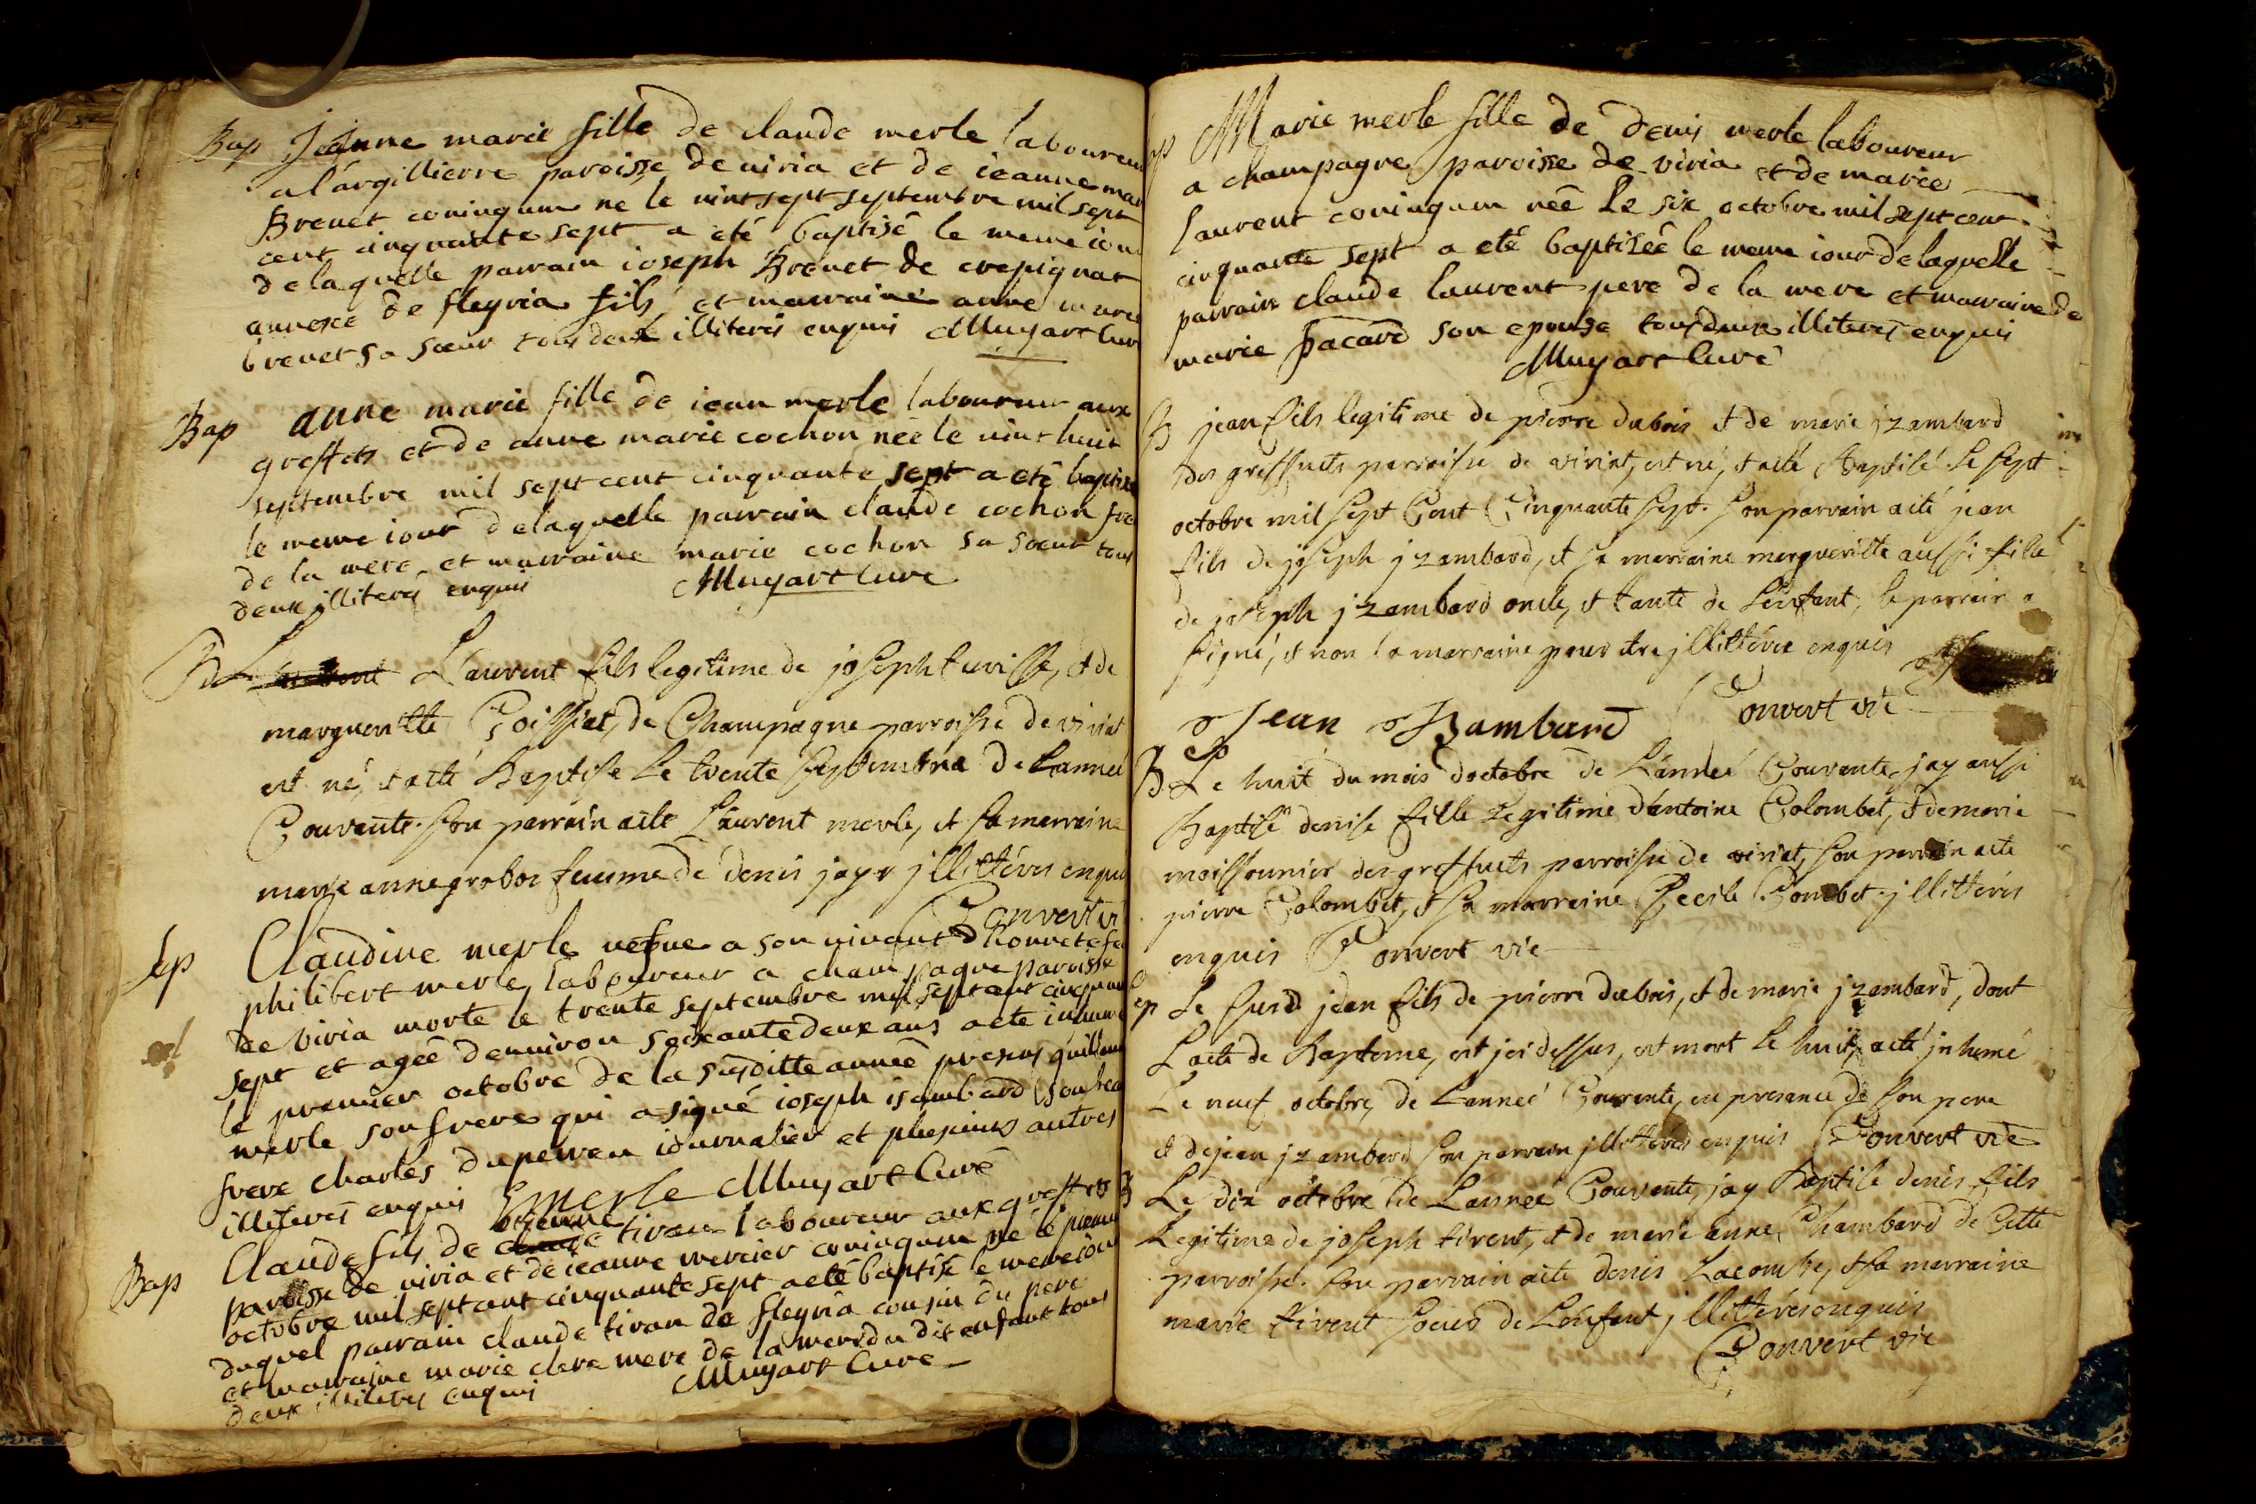 Bap Jeanne marie fille de claude merle laboureur
a l'argillierre paroisse de viria et de jeanne mar
Brevet coniugum né le vint sept septembre mil sept
cent cinquante sept a eté baptisé le meme iour
de laquelle parrain ioseph Brevet de crepignat
annexe de fleyria fils et marraine anne marie
brevet sa sœur tous deux illiteres enquis Muyart curé
Bap anne marie fille de iean merle laboureur aux
greffets et de anne marie cochon née le vint huit
septembre mil sept cent cinquante sept a eté baptisé
le meme iour de laquelle parrain claude cochon frere
de la mere et marraine marie cochon sa sœur tous
deux illiteres enquis Muyart curé
B Laurent fils legitime de joseph tuvisse, et de
margueritte Goissiat, de Champagne parroisse de viriat
est né, et acté Baptise Le trente septembre De Lannée
Courante. son parrain acté Laurent merle, et sa marraine
marie anne grobos femme de denis jayr jllitérés enquis
Convert vi
Sep Claudine merle vefve a son vivant d'honnete
philibert merle laboureur a champagne paroisse
de viria morte le trente septembre mil sept cent cinquante
sept et agée d'environ soixante deux ans a eté inhumé
le premier octobre de la susditte année presens guillaume
merle son frere qui a signé ioseph isambard son beau
frere charles duperreu iournalier et plusieurs autres
illiteres enquis G merle Muyart Curé
Bap Claude fils de etienne tiran laboureur aux greffets
paroisse de viria et de ieanne mercier coniugum né le premier
octobre mil sept cent cinquante sept a eté baptisé le meme iour
duquel parrain claude tiran de fleyria cousin du pere
et marraine marie clere mere de la mere du dit enfant tous
deux illiteres enquis Muyart Curé
Marie merle fille de denis merle laboureur
a champagne paroisse de viria et de marie
laurent coniugum née le six octobre mil sept cent
cinquante sept a eté baptisée le meme iour de laquelle
parrain claude laurent pere de la mere et marraine de
marie pacard son epouse tous deux illiteres enquis
Muyart curé
B jean fils legitime de pierre dubois et de marie jzambard
des greffuets parroisse de viriat, est né, et acté Baptisé Le sept
octobre mil sept Cent Cinquante sept. son parrain acté jean
fils de joseph jzambard, et sa marraine margueritte aussi fille
de joseph jzambard oncle, et tante de L'enfant, le parrain a
signé, et non la marraine pour être jllittérée enquis
Jean Isambard Convert vic
B Le huit du mois d'octobre de L'année Courante jay aussi
Baptisé denise fille Legitime d'antoine Colombet, et de marie
moissonnier des greffuets parroisse de viriat, son parrain acté
pierre Colombet, et sa marraine Cecile Combet jllittérés
enquis Convert vic
Sep Le susd jean fils de pierre dubois, et de marie jzambard, dont
Lacte de Bapteme, est jci dessus, est mort le huit, acté jnhumé
Le neuf octobre, de Lannée Courante, en presance de son pere
et de jean jzambard son parrain jllittérés enquis Convert vic
B Le dix octobre de Lannée Courante, jay Baptisé denis fils
Legitime de joseph tirent, et de marie anne Chambard de Cette
parroisse. son parrain acté denis Lacombe, et sa marraine
marie tirent sœur de L'enfant jllittérés enquis
Convert vic